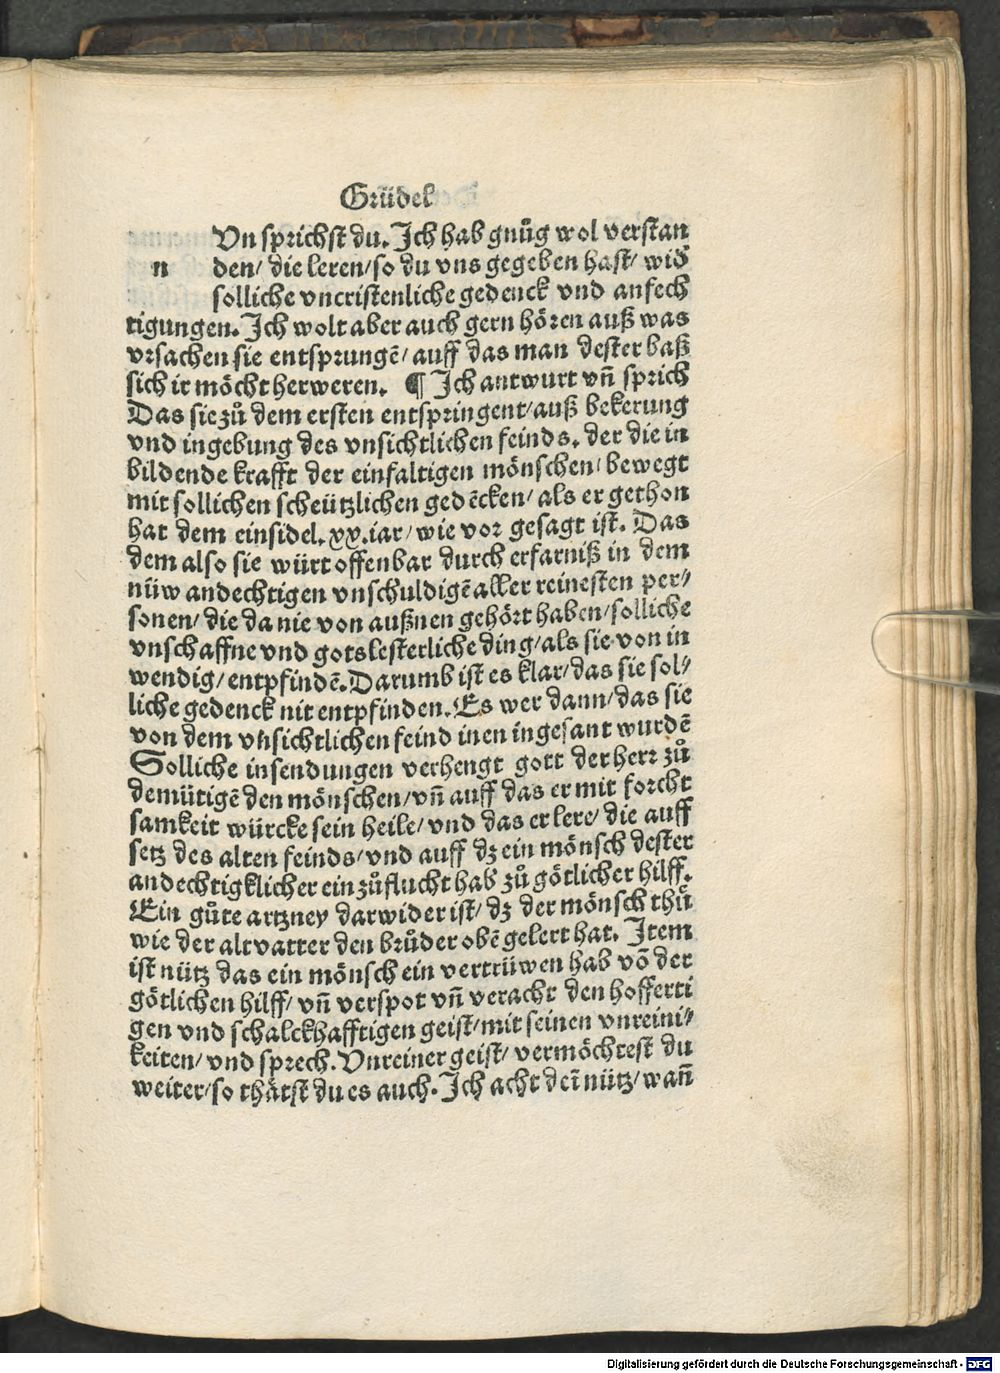 Grüdel
Vn sprichst du. Ich hab gnůg wol verstan
n den/ die leren/so du vns gegeben hast/ wid̕
solliche vncristenliche gedenck vnd anfech
tigungen. Ich wolt aber auch gern hören auß was
vrsachen sie entsprungē/ auff das man dester baß
sich ir möcht herweren. ¶ Ich antwurt vn̄ sprich
Das sie zů dem ersten entspringent/auß bekerung
vnd ingebung des vnsichtlichen feinds. der die in
bildende krafft der einfaltigen mönschen/ bewegt
mit sollichen scheützlichen gedēcken/ als er gethon
hat dem einsidel. xx. iar/ wie vor gesagt ist. Das
dem also sie würt offenbar durch erfarniß in dem
nüw andechtigen vnschuldigē aller reinesten per/
sonen/ die da nie von außnen gehört haben/solliche
vnschaffne vnd gotslesterliche ding/als sie von in
wendig/ entpfindē. Darumb ist es klar/das sie sol/
liche gedenck nit entpfinden. Es wer dann/das sie
von dem vnsichtlichen feind inen ingesant wurdē
Solliche insendungen verhengt gott der herr zů
demütigē den mönschen/vn̄ auff das er mit forcht
samkeit würcke sein heile/ vnd das er lere/ die auff
setz des alten feinds/vnd auff dz ein mönsch dester
andechtigklicher ein zůflucht hab zů götlicher hilff.
Ein gůte artzney darwider ist/ dz der mönsch thů
wie der altvatter den brůder obē gelert hat. Item
ist nütz das ein mönsch ein vertrüwen hab vō der
götlichen hilff/ vn̄ verspot vn̄ veracht den hofferti
gen vnd schalckhafftigen geist/mit seinen vnreini/
keiten/ vnd sprech. Vnreiner geist/ vermöchtest du
weiter/so thätst du es auch. Ich acht deī nütz/wan̄
Digitalisierung gefördert durch die Deutsche Forschungsgemeinschaft - DFG